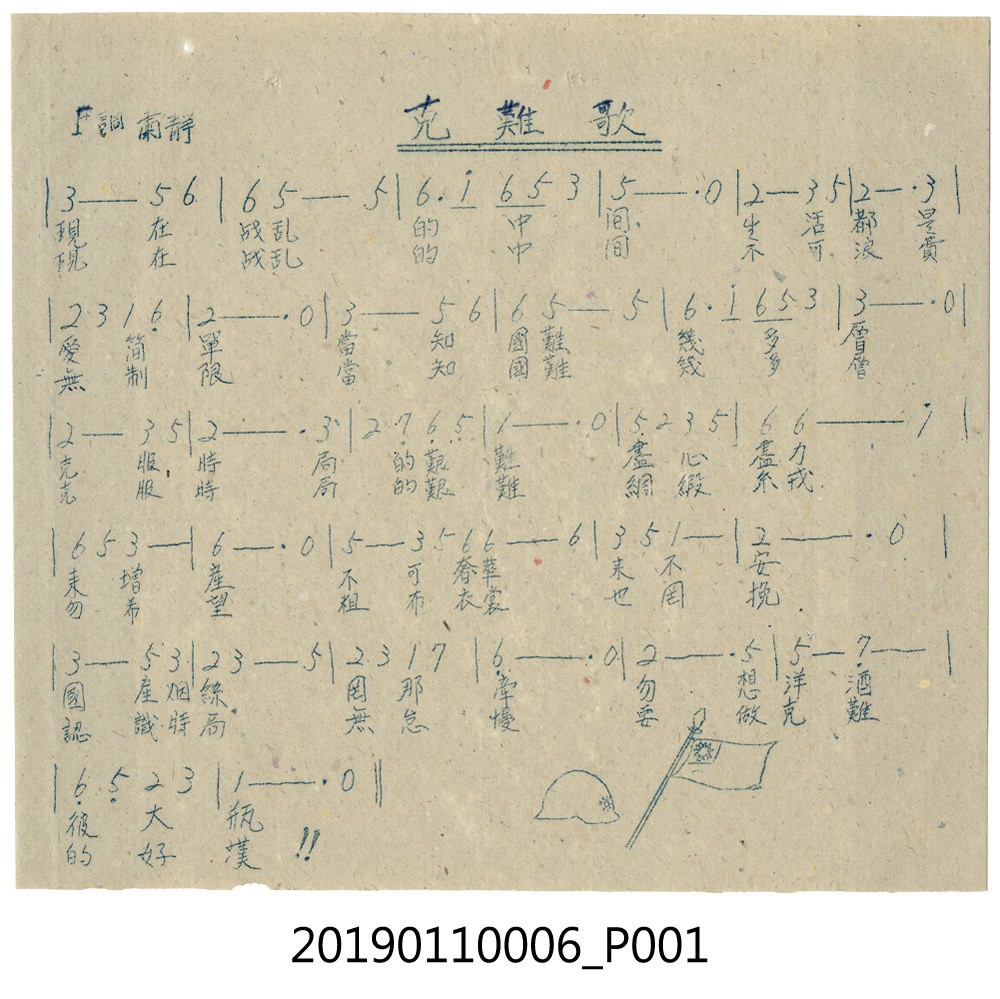 克難歌
F調 蘭靜
|3——5 6|6 5——5|6.i 6 5 3|5——.0|2—3 5|2—.3|
現 在 战 乱 的 中 间 生 活 都 是
現 在 战 乱 的 中 间 不 可 浪 費
|2 3 1 6|2——.0|3——5 6|6 5——5|6.i 6 5 3|3——.0|
愛 简 單 當 知 國 難 幾 多 層
無 制 限 當 知 國 難 幾 多 層
2—3 5|2——.3|2 7 6 5|1——.0|5 2 3 5|6 6——i|
克 服 時 局 的 艱 難 盡 心 盡 力
克 服 時 局 的 艱 難 綢 緞 糸 戎
|6 5 3—|6—.0|5—3 5 6 6——6|3 5 1—|2——.0|
来 增 產 不 可 奢 華 来 不 安
勿 希 望 祖 布 衣 裳 也 罔 挽
|3—5 3|2 3—5|2 3 1 7|6——.0|2——.5|5—7——|
國 產 烟 絲 罔 那 牽 勿 想 洋 酒
認 識 時 局 無 怠 慢 要 做 克 難
|6 5 2 3|1——.0‖
彼 大 瓶
的 好 漢 !!
20190110006_P001